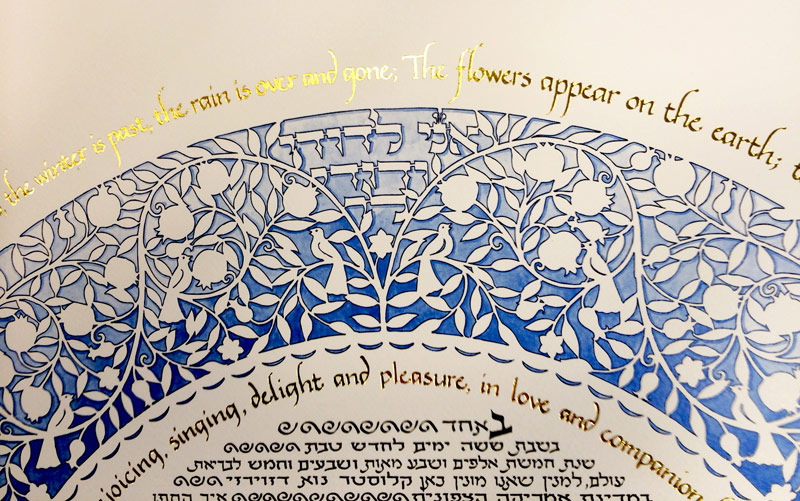 the winter is past, the rain is over and gone; The flowers appear on the earth;
אני לדודי
ודודי
לי
rejoicing, singing, delight and pleasure, in love and companion
באחד
בשבת ששה ימים לחדש טבת
שנת חמשת אלפים ושבע מאות ושבעים וחמש לבריאת
עולם, למנין שאנו מונין כאן קלוסטר נוא דזוירזי
במדינת אמריקה הצפונית איך החתן